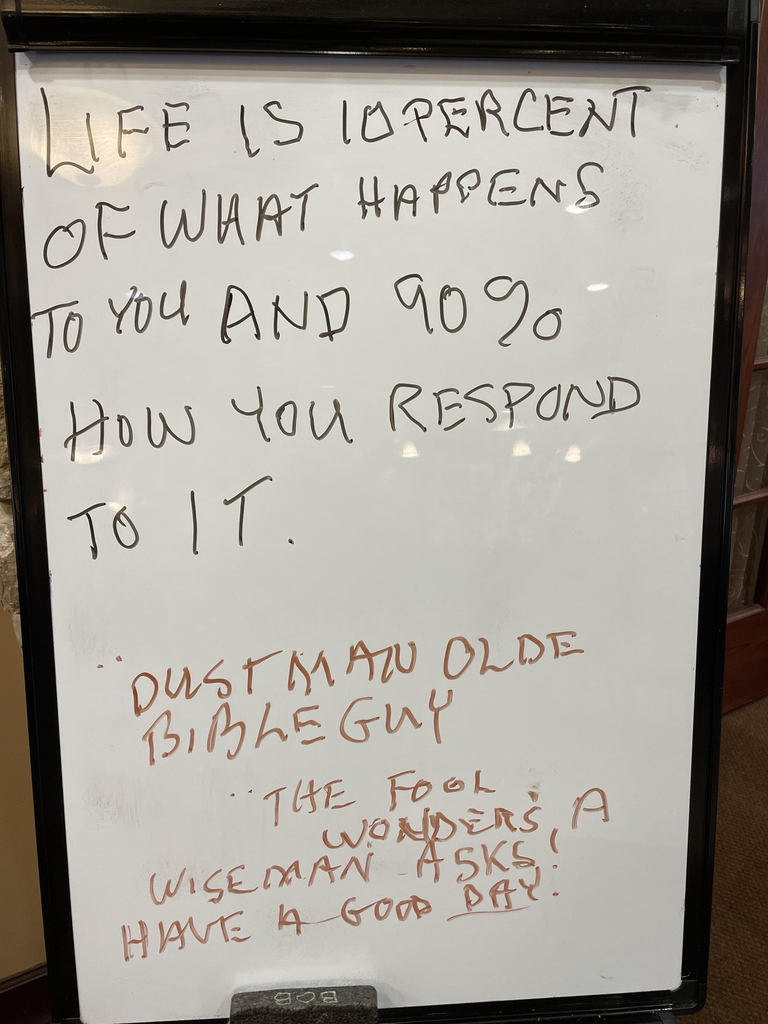 LIFE IS 10 PERCENT
OF WHAT HAPPENS
TO YOU AND 90%
HOW YOU RESPOND
TO IT.
¨DUSTMAN OLDE
BIBLE GUY
¨THE FOOL
WONDERS, A
WISEMAN ASKS!
HAVE A GOOD DAY.
BOB